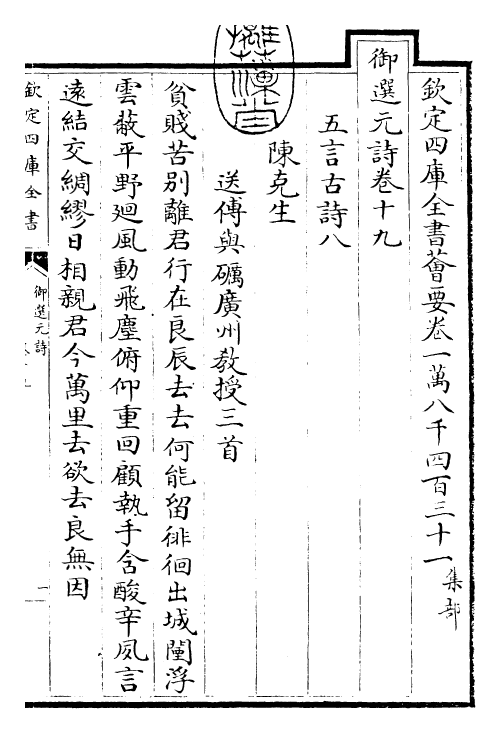 欽定四庫全書薈要卷一萬八千四百三十一集部
御選元詩卷十九
五言古詩八
陳克生
送傅與礪廣州教授三首
貧賤苦别離君行在良辰去去何能留徘徊出城闉浮
雲蔽平野廻風動飛塵俯仰重回顧執手含酸辛夙言
遠結交綢繆日相親君今萬里去欲去良無因
欽定四庫全書
御選元詩
一